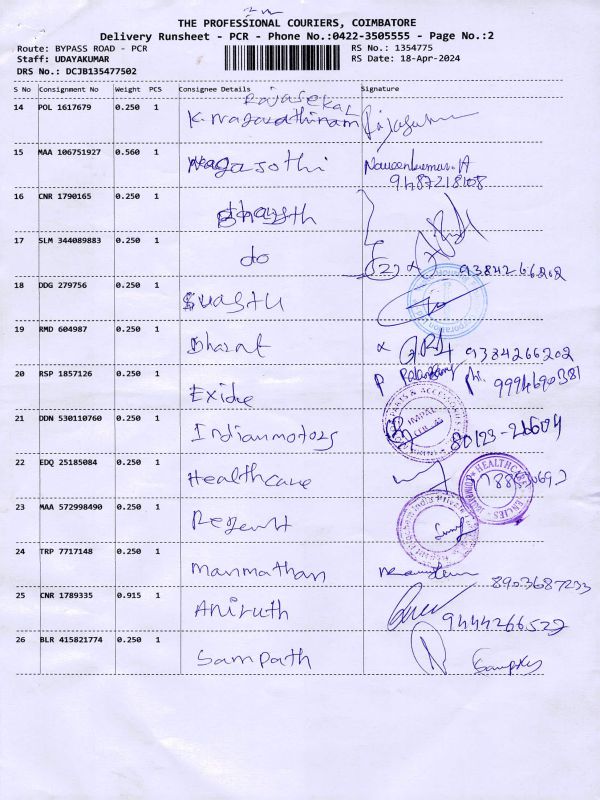 THE PROFESSIONAL COURIERS, COIMBATORE
Delivery Runsheet - PCR - Phone No.:0422-3505555 - Page No.:2
Route: BYPASS ROAD - PCR
RS No.: 1354775
Staff: UDAYAKUMAR
RS Date: 18-Apr-2024
DRS No.: DCJB135477502
S No Consignment No Weight PCS Consignee Details Signature
Rajasekar
14 POL 1617679 0.250 1 K. nagarathinam
15 MAA 106751927 0.560 1 Nagajothi Naveenkumar. A
9487218108
16 CNR 1790165 0.250 1
17 SLM 344089883 0.250 1 do 9384266202
18 DDG 279756 0.250 1
19 RMD 604987 0.250 1 Bharat 9384266202
20 RSP 1857126 0.250 1 Exide ph. 9994690381
21 DDN 530110760 0.250 1 Indianmotors
22 EDQ 25185084 0.250 1 Healthcare HEALTHCARE
23 MAA 572998490 0.250 1
24 TRP 7717148 0.250 1 manmathan 8903687233
25 CNR 1789335 0.915 1 Aniruth 9444266522
26 BLR 415821774 0.250 1 Sampath